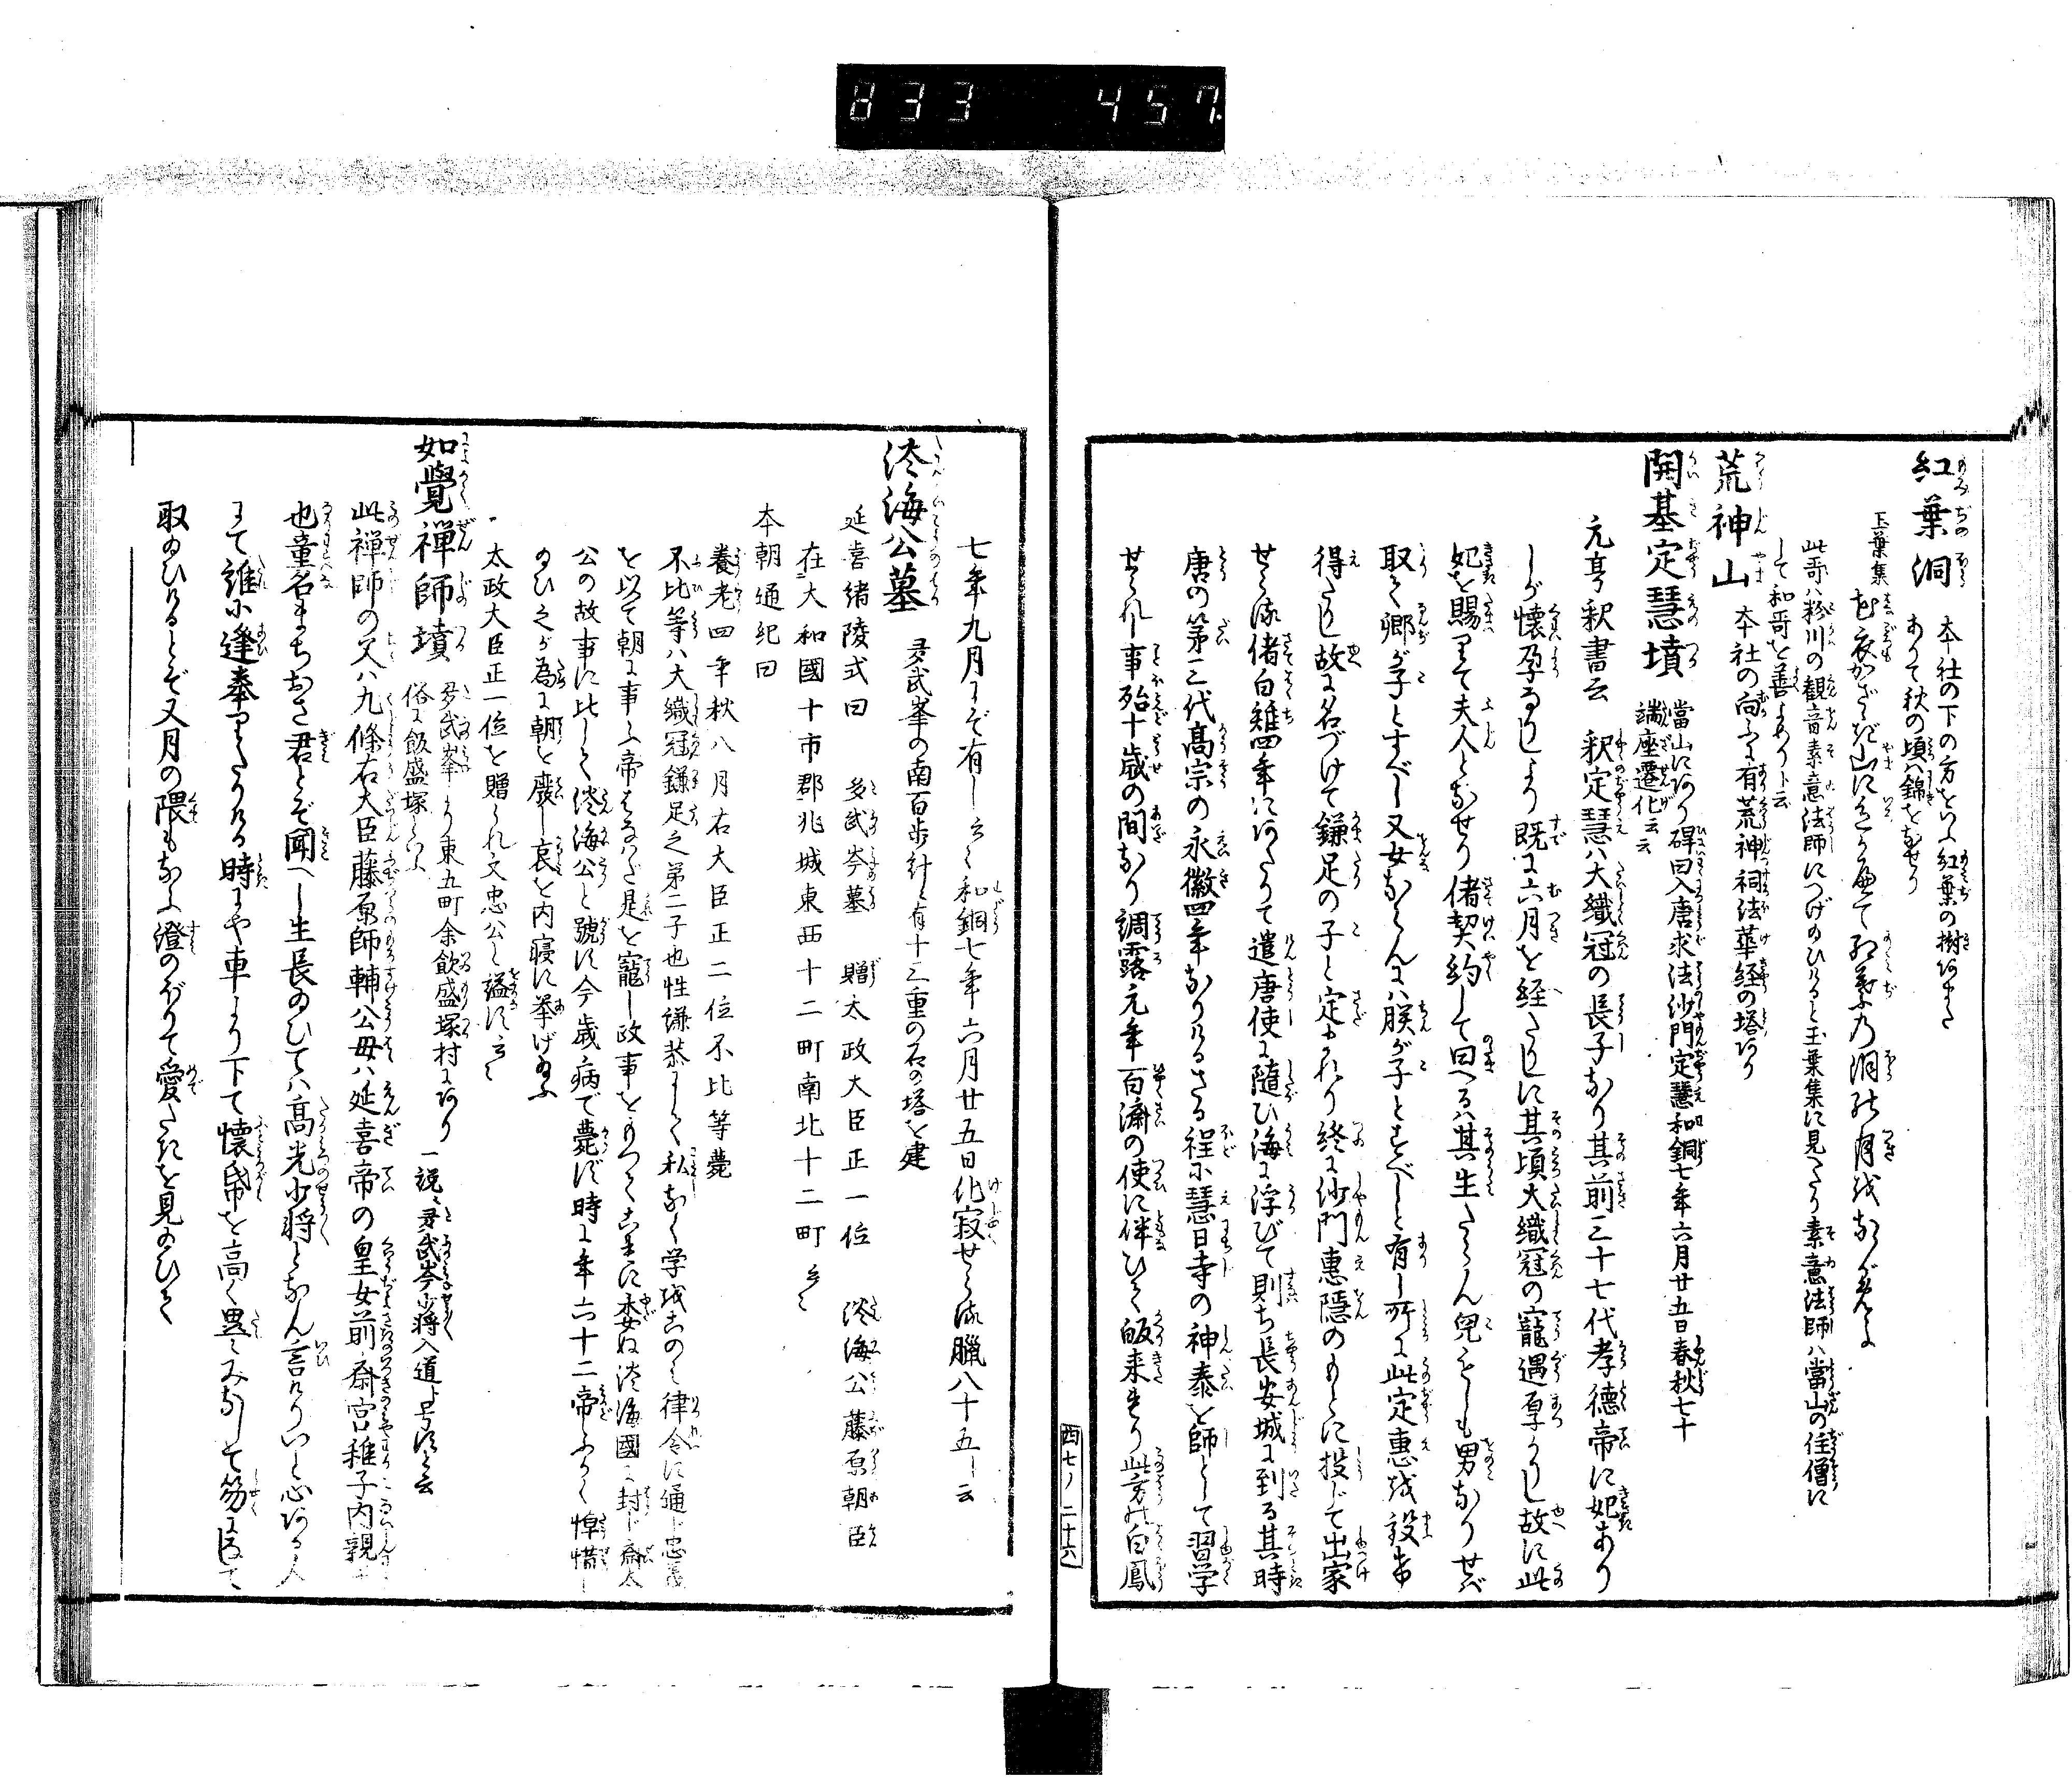 833 457
紅葉洞 本社の下の方をいふ紅葉の樹おほく
ありて秋の頃ハ錦をなせり
玉葉集
此哥ハ粉川の観音素意法師につげ給ひけると玉葉集に見へたり素意法師ハ當山の住僧に
して和哥を善すと云
荒神山 本社の向ふに有荒神祠法華経の塔あり
開基定慧墳 當山にあり碑曰入唐求法沙門定慧和銅七年六月廿五日春秋七十
端座遷化云云
元亨釈書云 釈定慧ハ大織冠の長子なり其前三十七代孝徳帝に妃あり
しが懐孕なりしより既に六月を経たりしに其頃大織冠の寵遇厚かりし故に此
妃を賜りて夫人となせり偖契約して曰へるハ其生たらん兒もしも男なりせバ
取て卿が子とすべし又女ならんにハ朕が子とすべしと有し所に此定惠を設け
得たりし故に名づけて鎌足の子と定かれり終に沙門惠隠のもとに投じて出家
せらる偖白雉四年にあたりて遣唐使に随ひ海に浮びて則ち長安城に到る其時
唐の第三代高宗の永徽四年なりけるさる程に慧日寺の神泰を師として習学
せられし事殆十歳の間なり調露元年百濟の使に伴ひて皈来けり此方の白鳳
西七ノ二十六
七年九月にぞ有しと云〻和銅七年六月廿五日化寂せらる臘八十五と云
淡海公墓 多武峯の南百歩計に有十三重の石の塔を建
延喜諸陵式曰 多武岑墓 贈太政大臣正一位 淡海公藤原朝臣
在大和國十市郡兆城東西十二町南北十二町云〻
本朝通紀曰
養老四年秋八月右大臣正二位不比等薨
不比等ハ大織冠鎌足之第二子也性謙恭にして私なく学をこのミ律令に通じ忠義
を以て朝に事ふ帝はなはだ是を寵し政事をもつてこれに委ね淡海國に封じ齋太
公の故事に比して淡海公と號す今歳病で薨ず時に年六十二帝ふかく悼惜し
給ひ之が為に朝を廢し哀を内寝に挙げ給ふ
太政大臣正一位を贈られ文忠公と謚す云〻
如覺禅師墳 多武峯より東五町余飲盛塚村にあり 一説ニ多武岑少将入道と号すと云
俗に飯盛塚といふ
此禅師の父ハ九條右大臣藤原師輔公母ハ延喜帝の皇女前斎宮稚子内親王
也童名まちおさ君とぞ聞へし生長給ひてハ高光少将となん言けりいと心ある人
にて誰に逢奉りたりける時にや車より下て懐帋を高く畳ミなして笏に具て
取給ひけるとぞ又月の隈もなふ澄のぼりて愛たきを見給ひて